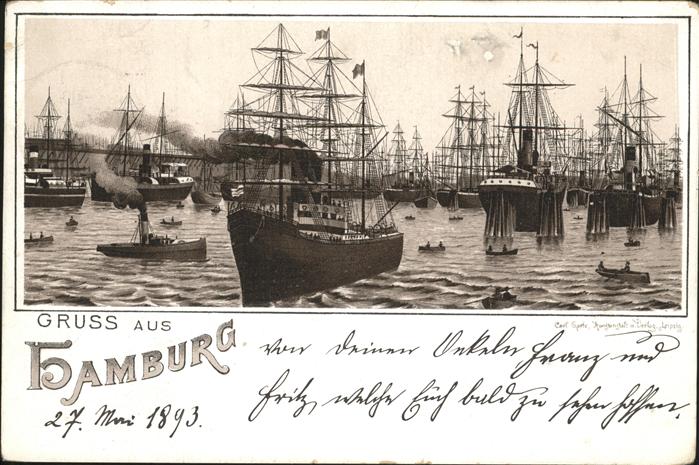 GRUSS AUS
HAMBURG
Carl Garte, Kunstanstalt u. Verlag, Leipzig.
von Deinen Onkeln Franz und
Fritz, welche Euch bald zu sehen hoffen.
27. Mai 1893.